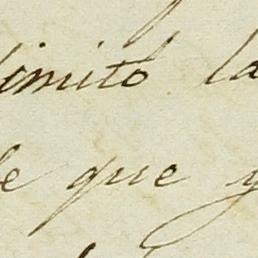 limitó la
que y